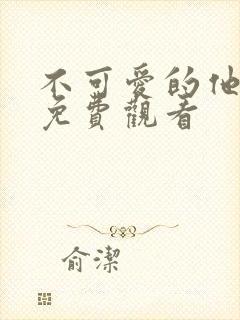 不可愛的他
免費觀看
俞潔